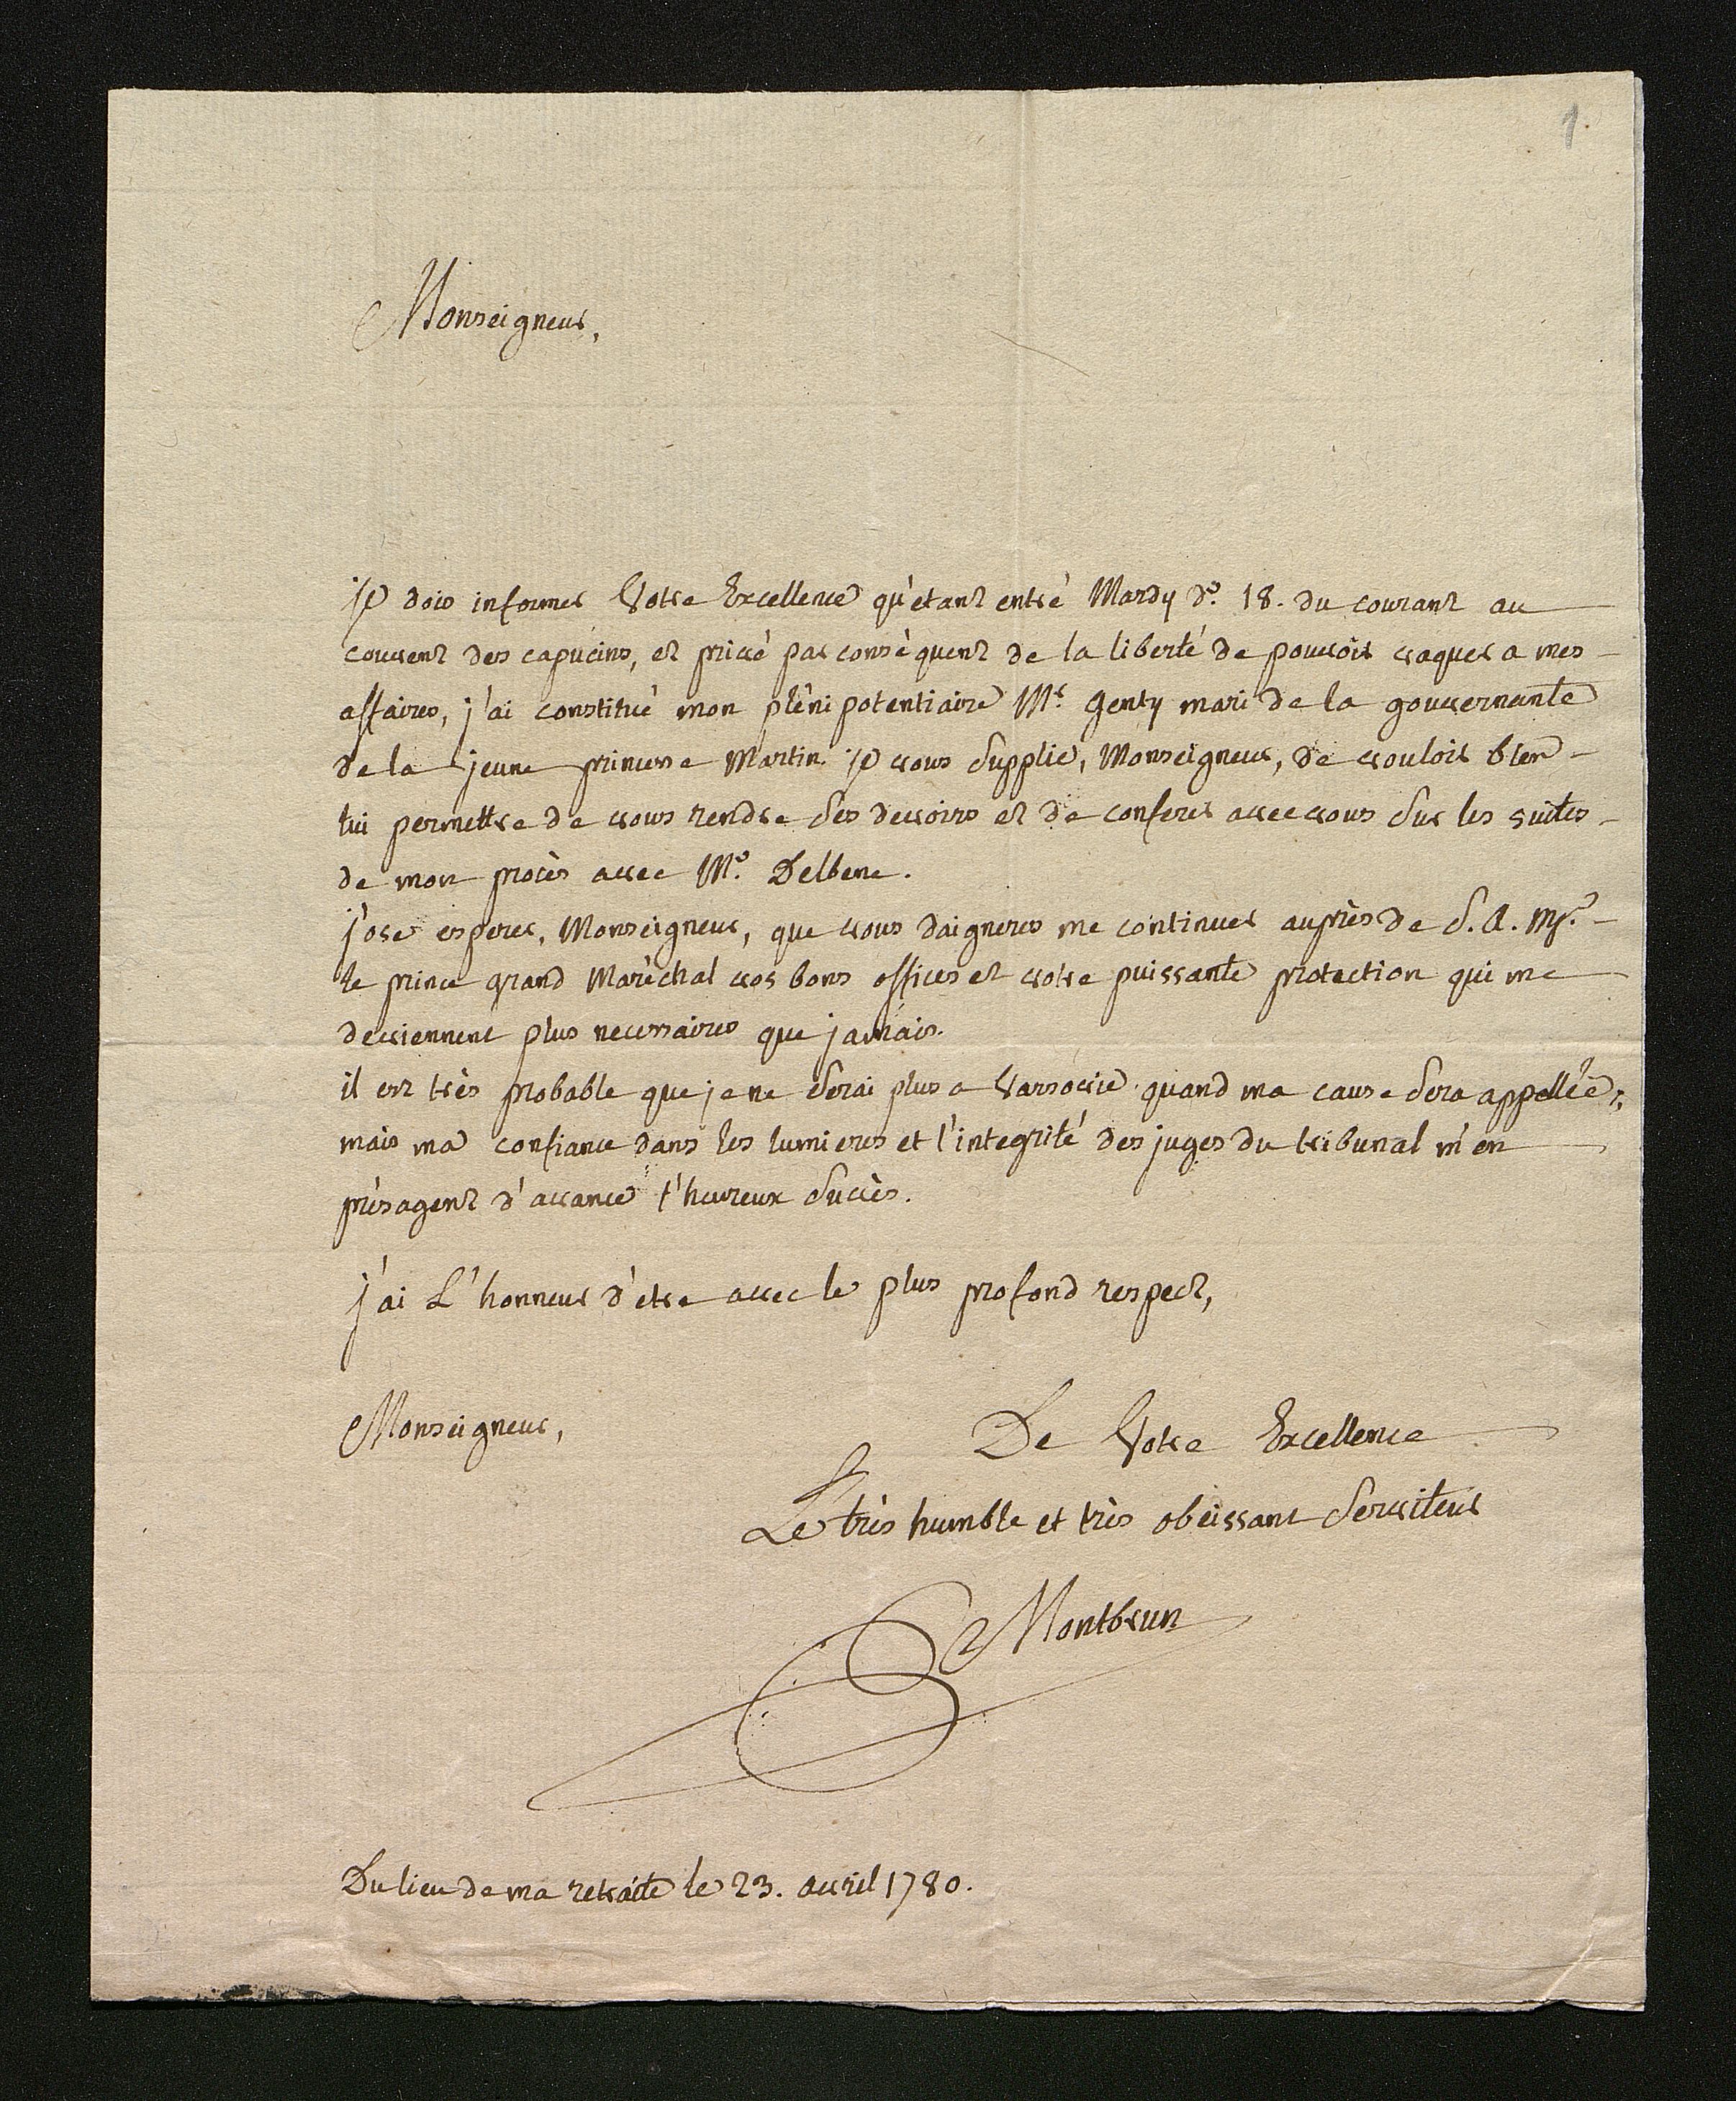 1.
Monseigneur,
je dois informer Votre Excellence qu'étant entré Mardy do. 18. du courant au
couvent des capucins, et privé par conséquent de la liberté de pouvoir vaquer a mes
affaires, j'ai constitué mon plénipotentiaire Mr. Genty mari de la gouvernante
de la jeune princesse Martin. je vous supplie, Monseigneur, de vouloir bien
lui permettre de vous rendre ses devoirs et de conferer avec vous sur les suites
de mon procès avec Mr. Delbene.
j'ose esperer, Monseigneur, que vous daigneres me continuer auprès de S. A. Mgr.
le prince grand Maréchal vos bons offices et votre puissante protection qui me
deviennent plus necessaires que jamais.
il est très probable que je ne serai plus a Varsovie quand ma cause sera appellée,
mais ma confiance dans les lumieres et l'integrité des juges du tribunal m'en
présagent d'avance l'heureux succès.
j'ai L'honneur d'etre avec le plus profond respect,
Monseigneur,
De Votre Excellence
Le très humble et très obéissant serviteur
Montbrun
Du lieu de ma retraite le 23. avril 1780.